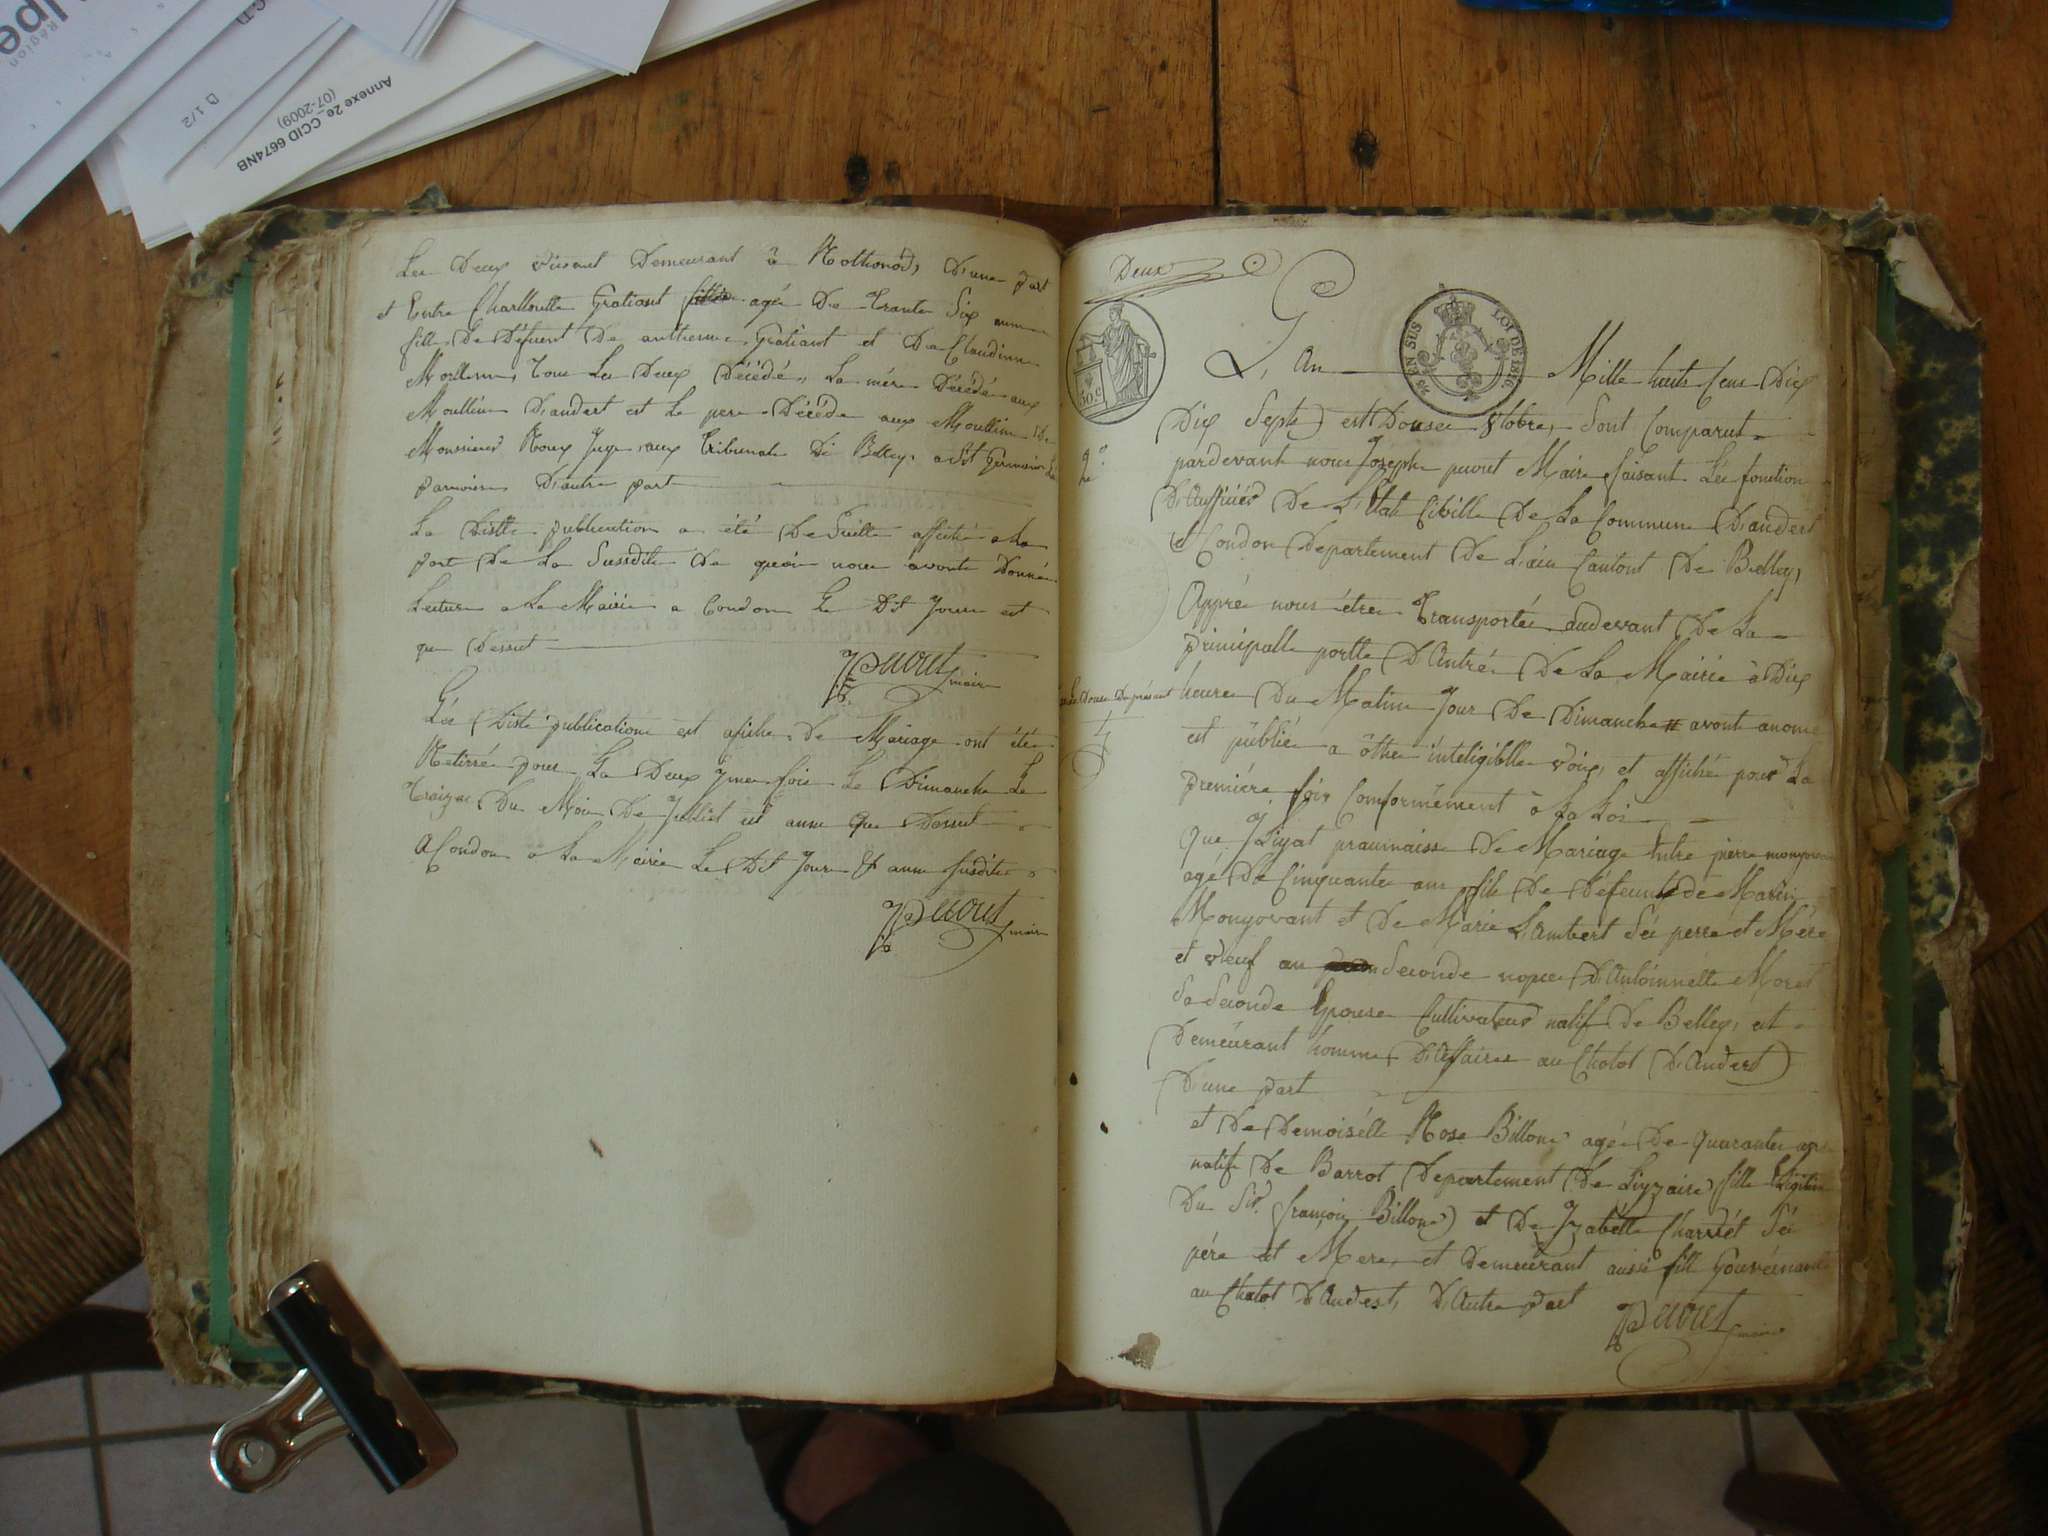 Région
Annexe 2e_CCID 6674NB
(07-2009)
D 1/2
Les Deux vivant Demeurant à Rothonod, D'une part
et Entre Charlloutte Gratiant agée De Trante Six anne
fille De Défuent De anthieme Gratiant et De Claudine
Mollien, Tous Les Deux Décédé, La mére Décédé aux
Moullien D'andert et Le pere Décédé aux Moullien De
Monsieur Roux Juge aux Tribunale De Belley a St Germain Les
paroisse D'autre part
La Ditte publication a été De Suitte affiché a La
port De La Sussdite De quoi nous avont Donné
Lecture a La Mairie a Condon Le Dit Jour est
que Dessut
Puvout maire
Les Ditte publication est afiche De Mariage ont été
Retirré pour La Deux yme fois Le Dimanche Le
Traize Du Mois De Julliet est anne que Dessut
A Condon a La Mairie Le Dit Jour & anne susdite
Puvout maire
Deux
EN SUS LOI DE 1816
50.c
L'An Mille huits Cens Dix
Dix Sept est Douse 8tobre, Sont Comparut
pardevant nous Joseph puvout Maire faisant Les fonction
D'aufficiés De L'Etat Civille De La Commune D'andert
et Condon Departement De L'ain Cantont De Belley,
Appré nous étre Transportée audevant De La
principalle portte D'Antrée De La Mairie à Dix
heure Du Matine Jour De Dimanche # avont anonce
Le Douse Du présant
est publiée a ôthe inteligiblle voix, et affiché pour La
premiére fois Comformément à La Loi
Que Jl iyat praumaisse De Mariage Entre pierre monyovant
agé De Cinquante ans fils De Défeunt de Marin
Monyovant et De Marie Lambert Sée perre et Mére
et veuf an Seconde nopce D'Antoinnette Moret
Sa Seconde Epouse Cultivateur natif De Belley, est
Demeurant homme D'Affaires au Chatot D'Andert
D'une part
et De Demoisélle Rose Billon agée De quarante ans
natife De Barrot Departement De Liyzaire fille Legitime
Du Sir. francois Billon et De Jzabelle Charvet Sée
pére et Mere, et Demeurant aussi fill Gouvernante
au Chatot D'Andert, D'Autre part
Puvout maire